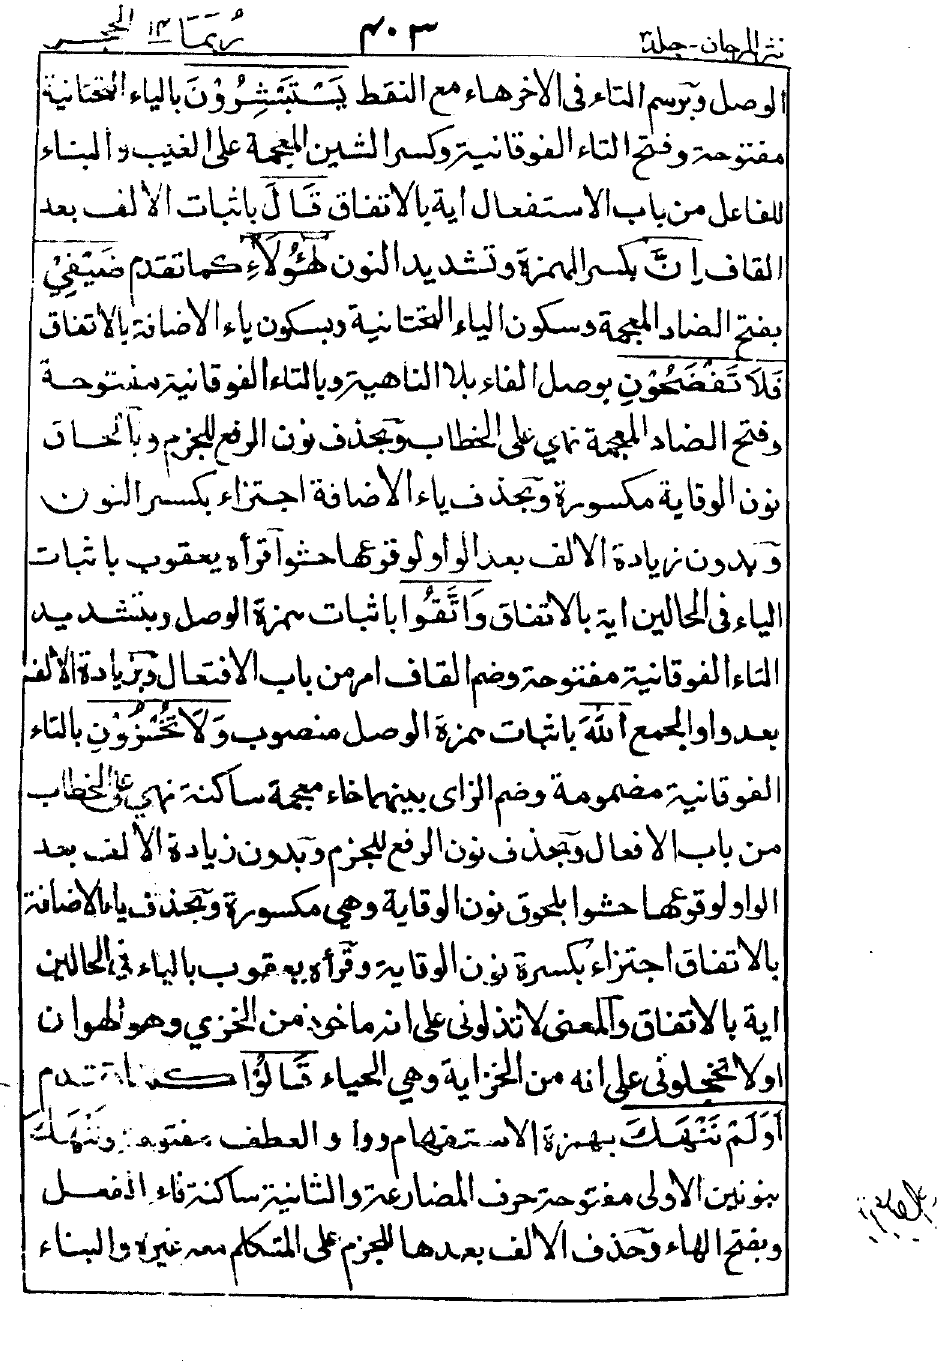 نثر المرجان-جلد٣ ٤٠٣ رُبَمَا ١٤ الحجر
الوصل وبرسم التاء فى الأخر هاء مع النقط يَسْتَبْشِرُوْنَ بالياء التحتانية
مفتوحة وفتح التاء الفوقانية وكسر الشين المعجمة على الغيب والبناء
للفاعل من باب الاستفعال أية بالاتفاق قَالَ باثبات الألف بعد
القاف إِنَّ بكسر الهمزة وتشديد النون هٰٓؤُلَآءِ كما تقدم ضَيْفِيْ
بفتح الضاد المعجمة وسكون الياء التحتانية وبسكون ياء الاضافة بالاتفاق
فَلَا تَفْضَحُوْنِ بوصل الفاء بلا الناهية وبالتاء الفوقانية مفتوحة
وفتح الضاد المعجمة نهي على الخطاب وبحذف نون الرفع للجزم وبالحاق
نون الوقاية مكسورة وبحذف ياء الاضافة اجتزاء بكسر النون
وبدون زيادة الالف بعد الواو لوقوعها حشوا قرأه يعقوب باثبات
الياء فى الحالين اية بالاتفاق وَاتَّقُوا باثبات همزة الوصل وبتشديد
التاء الفوقانية مفتوحة وضم القاف امر من باب الافتعال وبزيادة الألف
بعد واو الجمع اللّٰهَ باثبات همزة الوصل منصوب وَلَا تُخْزُوْنِ بالتاء
الفوقانية مضمومة وضم الزاى بينهما خاء معجمة ساكنة نهي على الخطاب
من باب الافعال وبحذف نون الرفع للجزم وبدون زيادة الألف بعد
الواو لوقوعها حشوا بلحوق نون الوقاية وهي مكسورة وبحذف ياء الاضافة
بالاتفاق اجتزاء بكسرة نون الوقاية وقرأه يعقوب بالياء في الحالين
اية بالاتفاق والمعنى لا تذلونى على انه ماخوذ من الخزي وهو الهوان
اولا تخجلونى على انه من الخزاية وهي الحياء قَالُوْا كما تقدم
أَوَلَمْ نَنْهَكَ بهمزة الاستفهام وواو العطف مفتوحة وننهك
بنونين الاولى مفتوحة حرف المضارعة والثانية ساكنة فاء الفعل
وبفتح الهاء وحذف الالف بعدها للجزم على المتكلم معه غيره والبناء